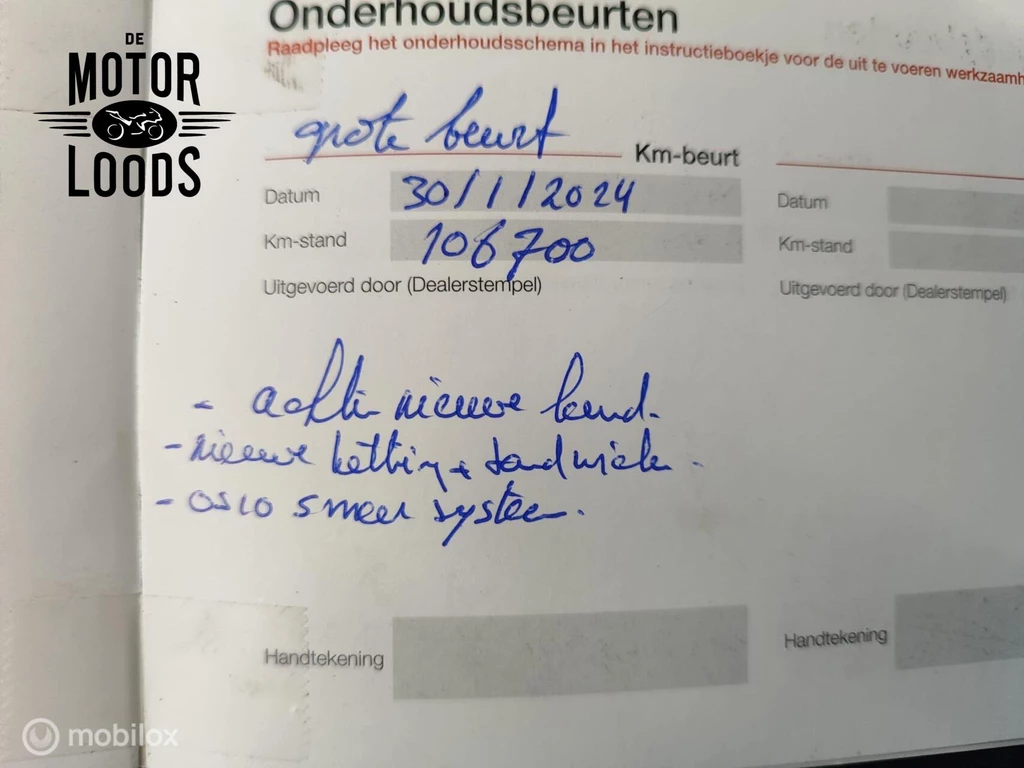 DE
MOTOR
LOODS
Onderhoudsbeurten
Raadpleeg het onderhoudsschema in het instructieboekje voor de uit te voeren werkzaamh
grote beurt
Km-beurt
Datum 30/1/2024
Km-stand 106700
Uitgevoerd door (Dealerstempel)
Datum
Km-stand
Uitgevoerd door (Dealerstempel)
- achter nieuwe band.
- nieuwe ketting + tandwielen.
- oslo smeer systeem.
Handtekening
Handtekening
mobilox